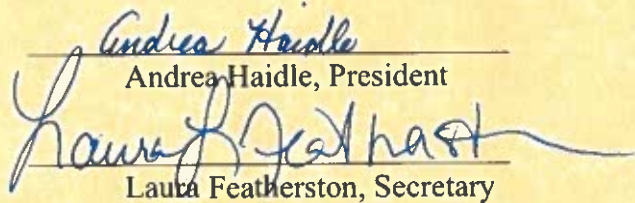 Andrea Haidle
Andrea Haidle, President
Laura L Featherston
Laura Featherston, Secretary